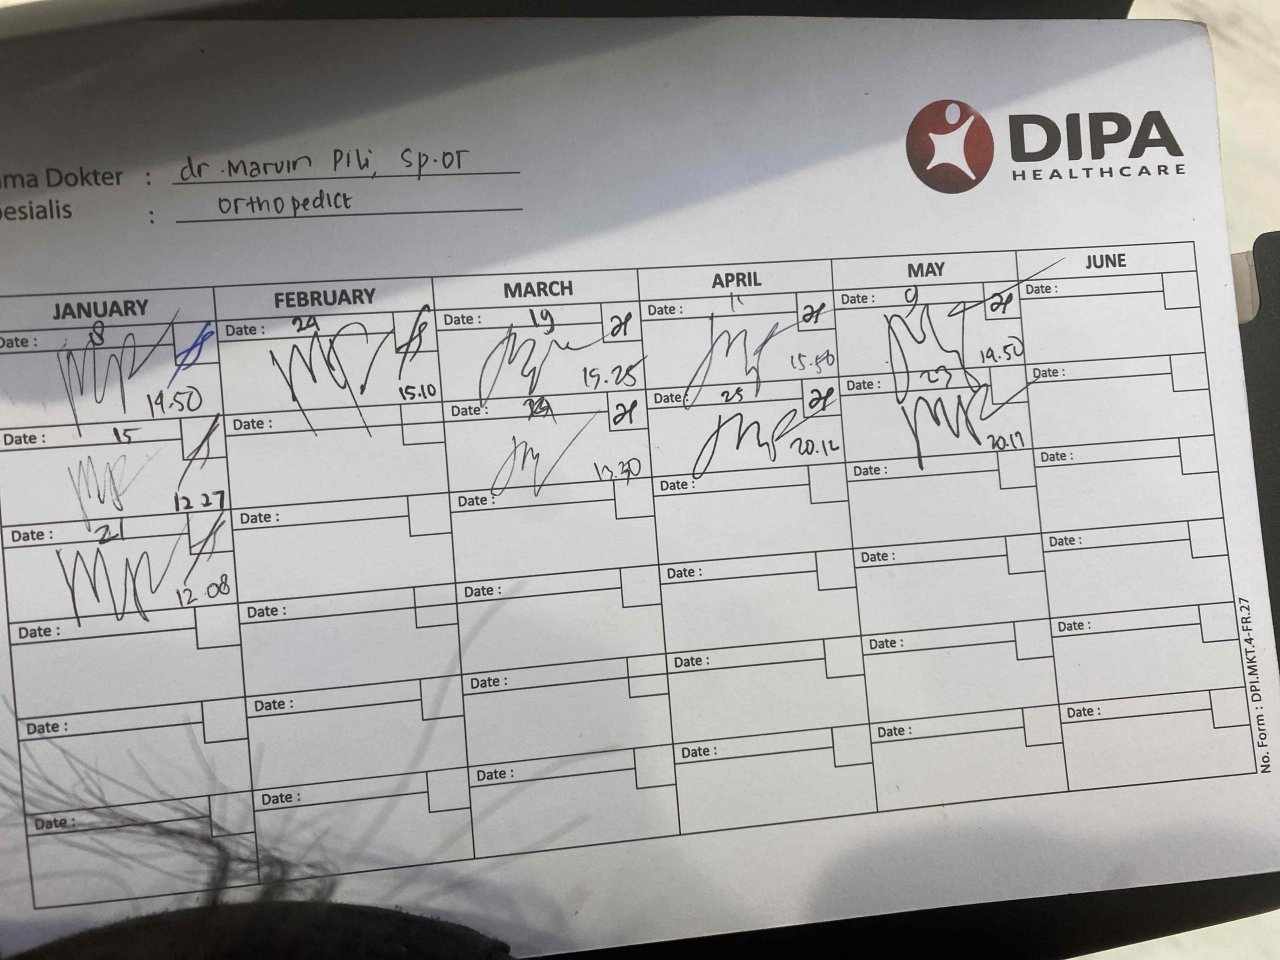 DIPA
HEALTHCARE
ma Dokter : dr. Marvin Pili, Sp.OT
esialis : Orthopedict
JANUARY FEBRUARY MARCH APRIL MAY JUNE
Date : 8 Date : 24 Date : 19 Date : 11 Date : 9 Date :
19.50 15.10 15.50 19.50
Date : 15 Date : Date : Date : 25 Date : 23 Date :
12 27 20.12 20.17
Date : 21 Date : Date : Date : Date : Date :
12 08
Date : Date : Date : Date : Date : Date :
Date : Date : Date : Date : Date : Date :
Date : Date : Date : Date : Date : Date :
No. Form : DPI.MKT.4-FR.27